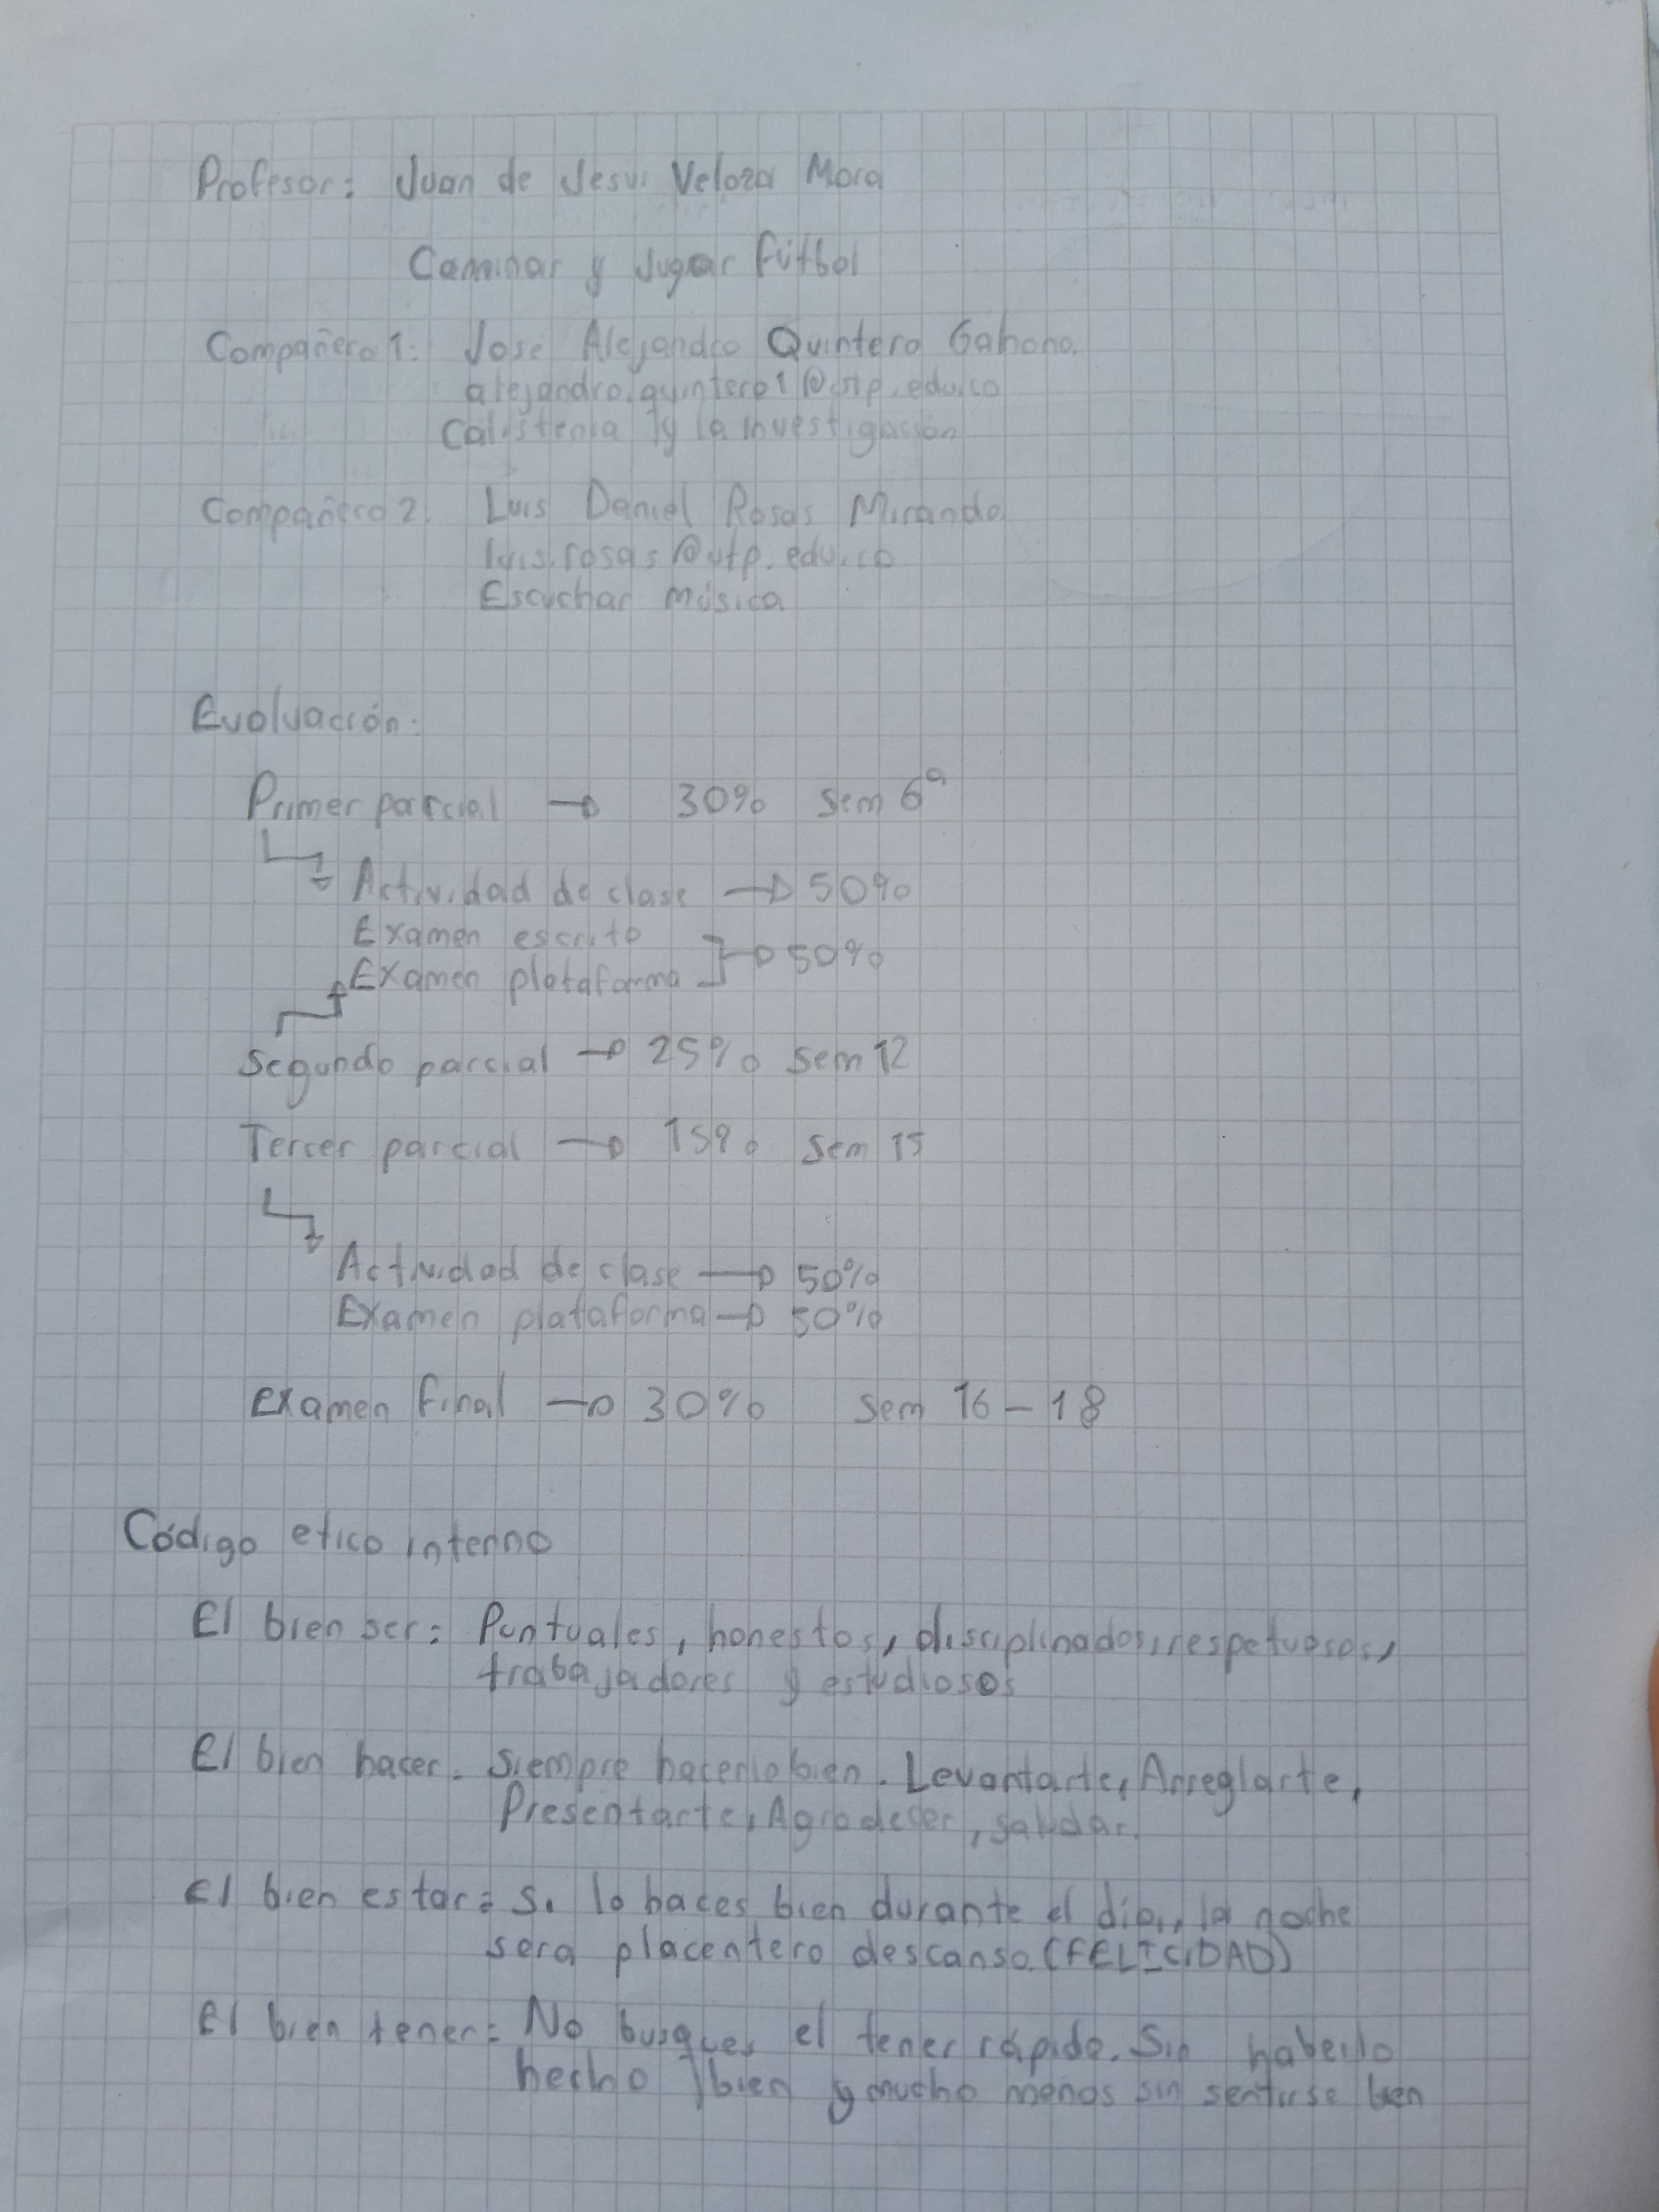 Profesor: Juan de Jesus Veloza Mora
Caminar y Jugar fútbol
Compañero 1: José Alejandro Quintero Gahona.
alejandro.quintero1@utp.edu.co
Calistenia y la investigación
Compañero 2: Luis Daniel Rosas Miranda
luis.rosas@utp.edu.co
Escuchar música
Evaluación:
Primer parcial → 30% Sem 6ª
Actividad de clase → 50%
Examen escrito
Examen plataforma → 50%
Segundo parcial → 25% Sem 12
Tercer parcial → 15% Sem 15
Actividad de clase → 50%
Examen plataforma → 50%
Examen final → 30% Sem 16 - 18
Código etico interno
El bien ser: Puntuales, honestos, disciplinados, respetuosos,
trabajadores y estudiosos
El bien hacer: Siempre hacerlo bien. Levantarte, Arreglarte,
Presentarte, Agradecer, saludar.
El bien estar: Si lo haces bien durante el día, la noche
sera placentero descanso. (FELICIDAD)
El bien tener: No busques el tener rápido. Sin haberlo
hecho bien y mucho menos sin sentirse bien